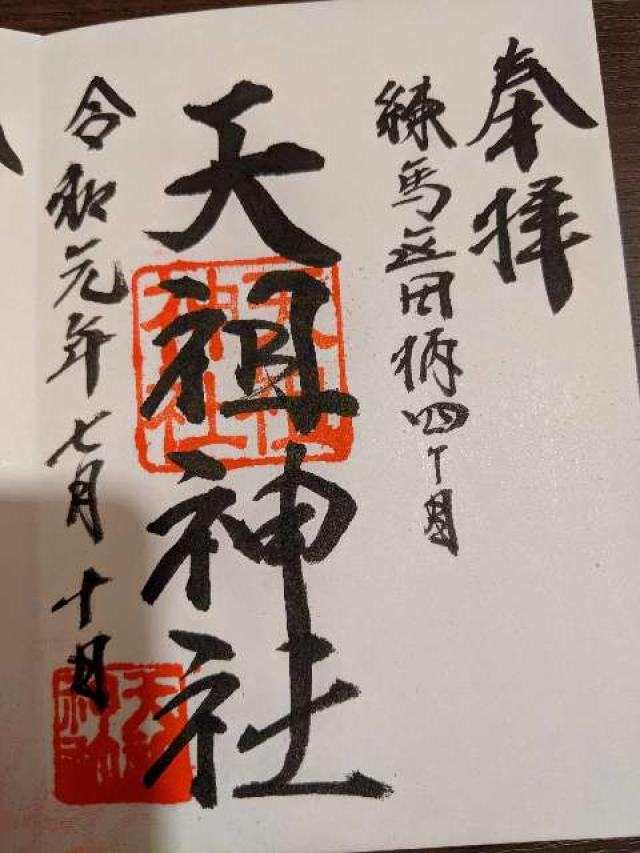 奉拝
練馬区田柄四丁目
天祖神社
天祖神社
令和元年七月十日